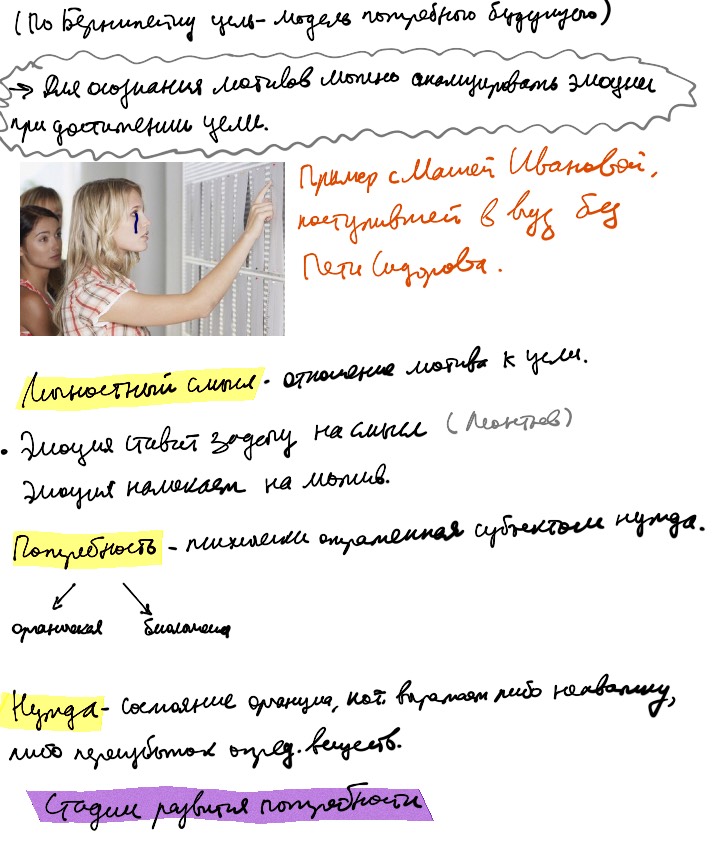 (По Бернштейну цель - модель потребного будущего)
→ Для осознания мотивов можно анализировать эмоции
при достижении цели.
Пример с Машей Ивановой,
поступившей в вуз без
Пети Сидорова.
Личностный смысл - отношение мотива к цели.
• Эмоция ставит задачу на смысл (Леонтьев)
Эмоция намекает на мотив.
Потребность - психически отраженная субъектом нужда.
органическая
Нужда - состояние организма, кот. выражает либо нехватку,
либо переизбыток опред. веществ.
Стадии развития потребности